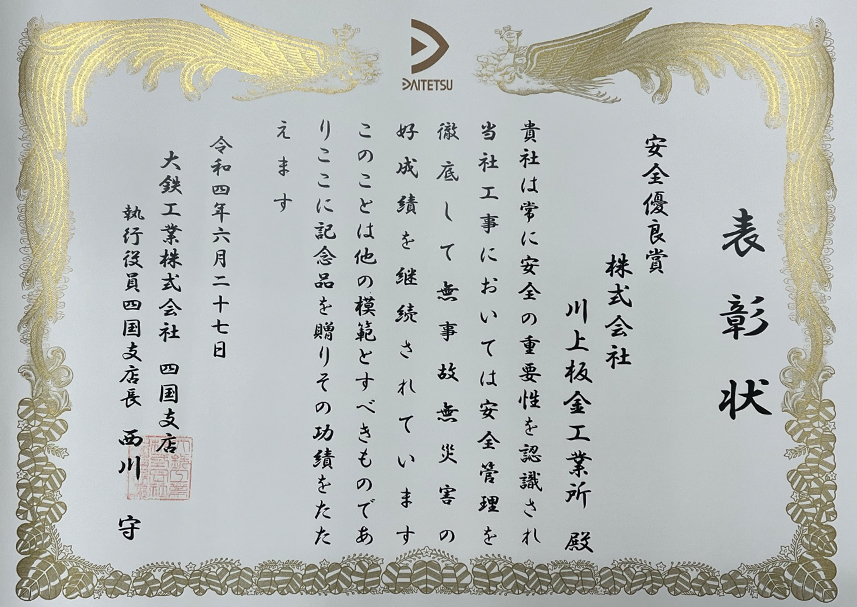 DAITETSU
表彰状
安全優良賞
株式会社
川上板金工業所 殿
貴社は常に安全の重要性を認識され
当社工事においては安全管理を
徹底して無事故無災害の
好成績を継続されています
このことは他の模範とすべきものであ
りここに記念品を贈りその功績をたた
えます
令和四年六月二十七日
大鉄工業株式会社 四国支店
執行役員四国支店長 西川 守